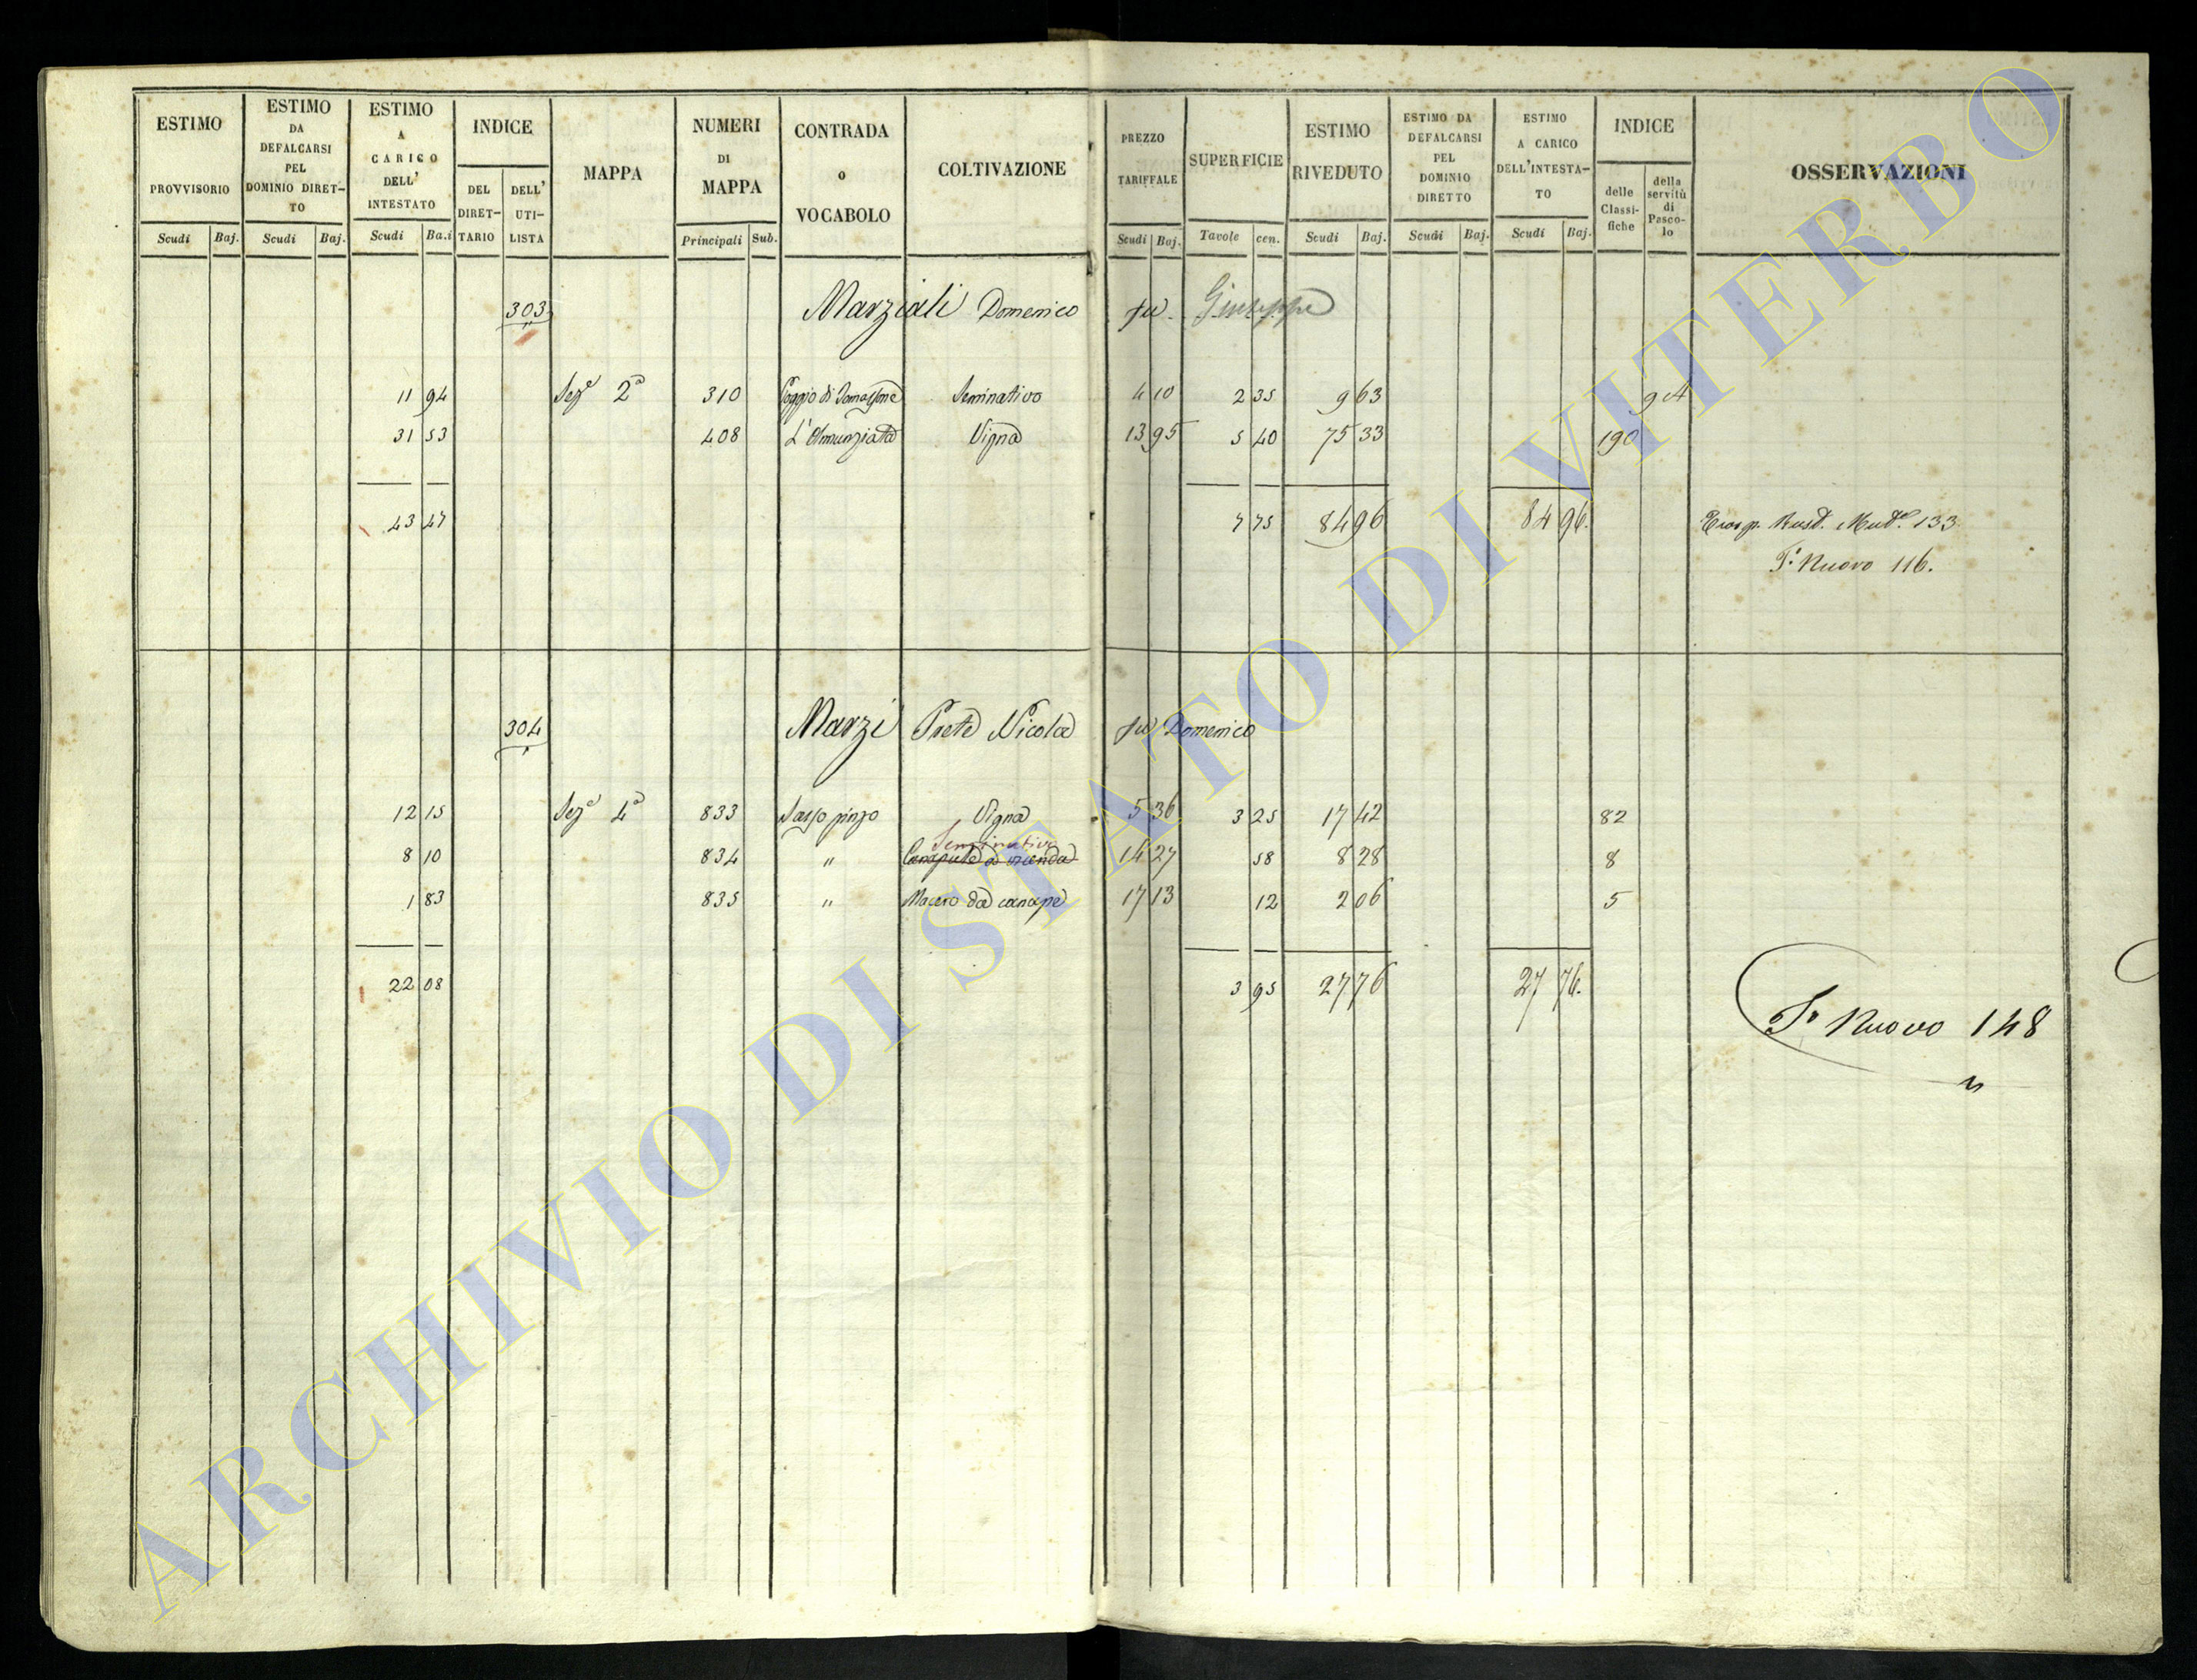 ESTIMO PROVVISORIO | ESTIMO DA DEFALCARSI PEL DOMINIO DIRETTO | ESTIMO A CARICO DELL' INTESTATO | INDICE DEL DIRETTARIO | DELL' UTILISTA | MAPPA | NUMERI DI MAPPA | CONTRADA o VOCABOLO | COLTIVAZIONE | PREZZO TARIFFALE | SUPERFICIE | ESTIMO RIVEDUTO | ESTIMO DA DEFALCARSI PEL DOMINIO DIRETTO | ESTIMO A CARICO DELL'INTESTATO | INDICE delle Classifiche | della servitù di Pascolo | OSSERVAZIONI
Scudi Baj. Scudi Baj. Scudi Ba.i Principali Sub. Scudi Baj. Tavole cen. Scudi Baj. Scudi Baj. Scudi Baj.
303 Marziali Domenico fu Giuseppe
11 94 Seze 2a 310 Poggio di Seminativo 4 10 2 35 9 63 94
31 53 408 L'Annunziata Vigna 13 95 5 40 75 33 190
43 47 7 75 84 96 84 96. Rust. 133
Po Nuovo 116.
304 Marzi Prete Nicola fu Domenico
12 15 Seze 4a 833 Sasso pinzo Vigna 5 36 3 25 17 42 82
Seminativo
8 10 834 " Canapule a vicenda 14 27 58 8 28 8
1 83 835 " Macero da canape 17 13 12 2 06 5
22 08 3 95 27 76 27 76.
Po Nuovo 148
ARCHIVIO DI STATO DI VITERBO